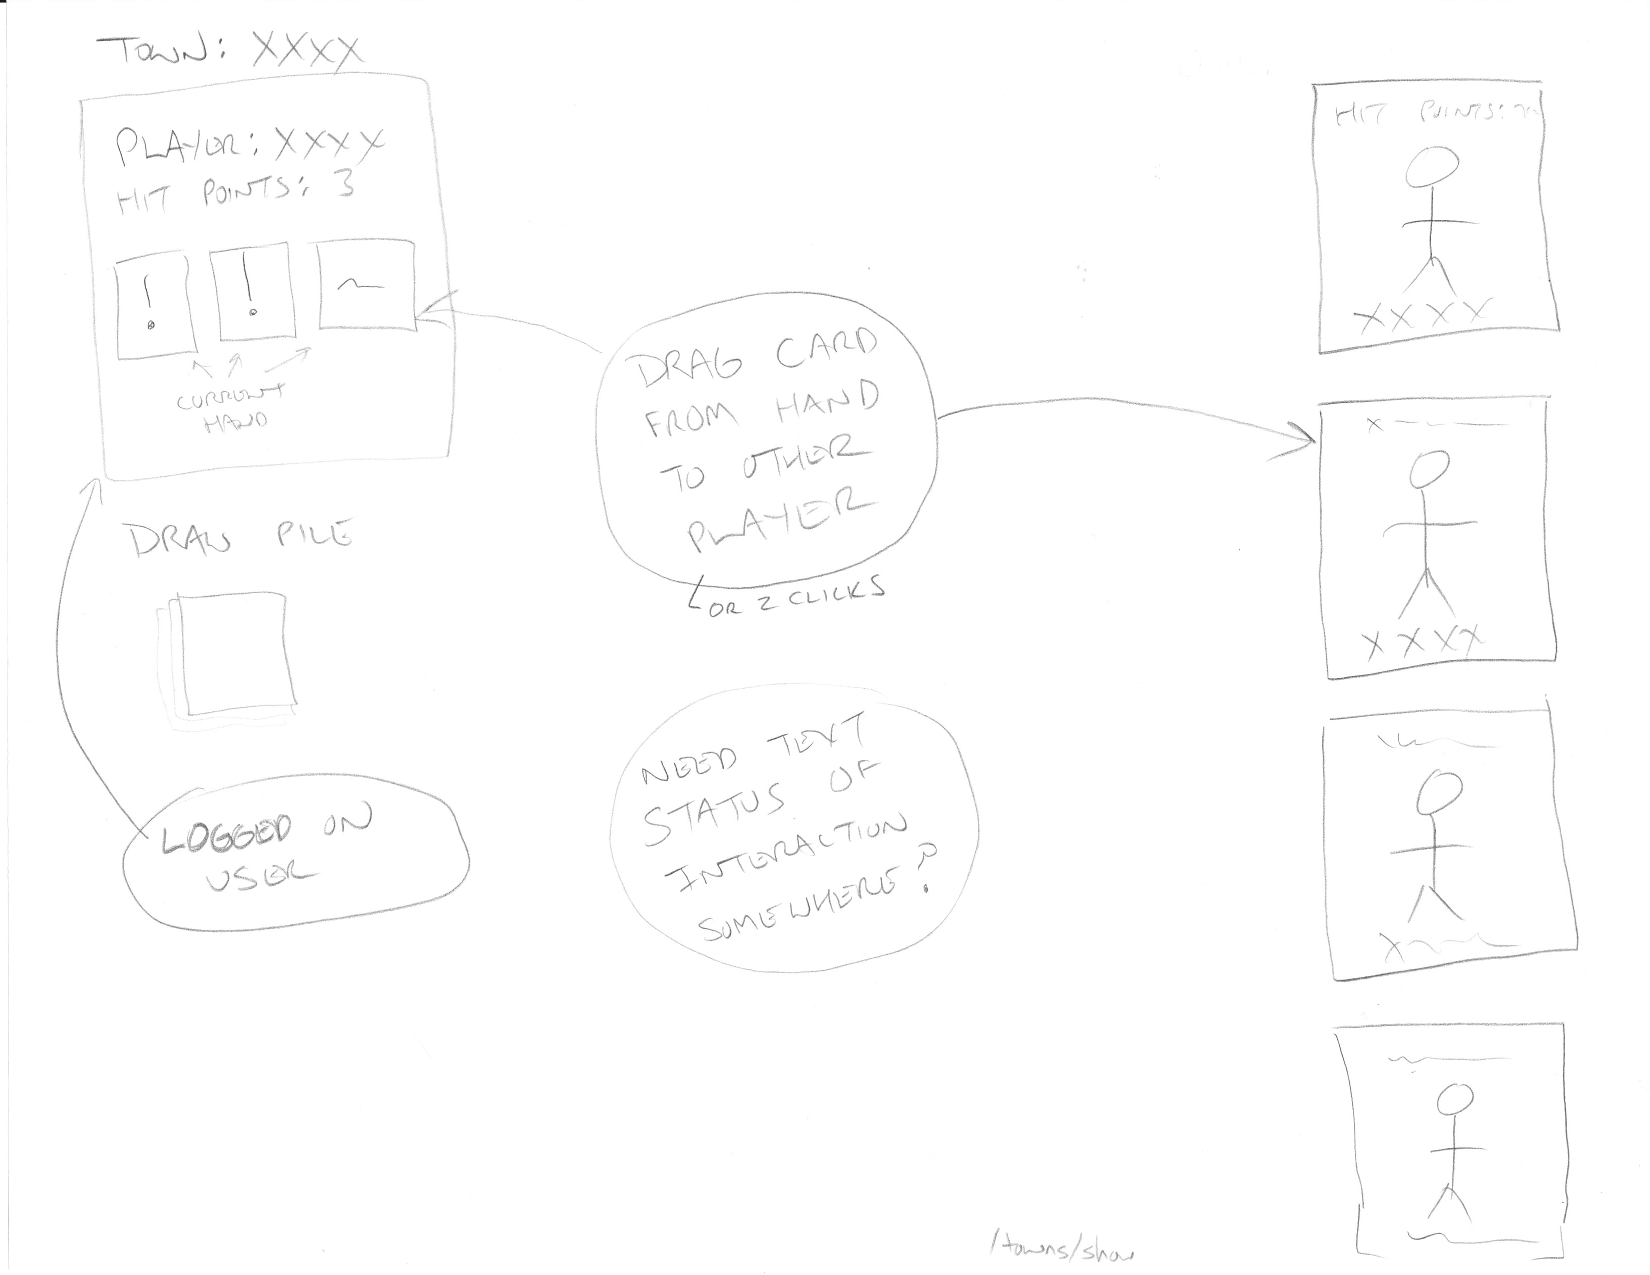 TOWN: XXXX
PLAYER: XXXX
HIT POINTS: 3
! ! ~
CURRENT
HAND
DRAW PILE
LOGGED ON
USER
DRAG CARD
FROM HAND
TO OTHER
PLAYER
OR 2 CLICKS
NEED TEXT
STATUS OF
INTERACTION
SOMEWHERE?
HIT POINTS:
XXXX
X
XXXX
X
/towns/show